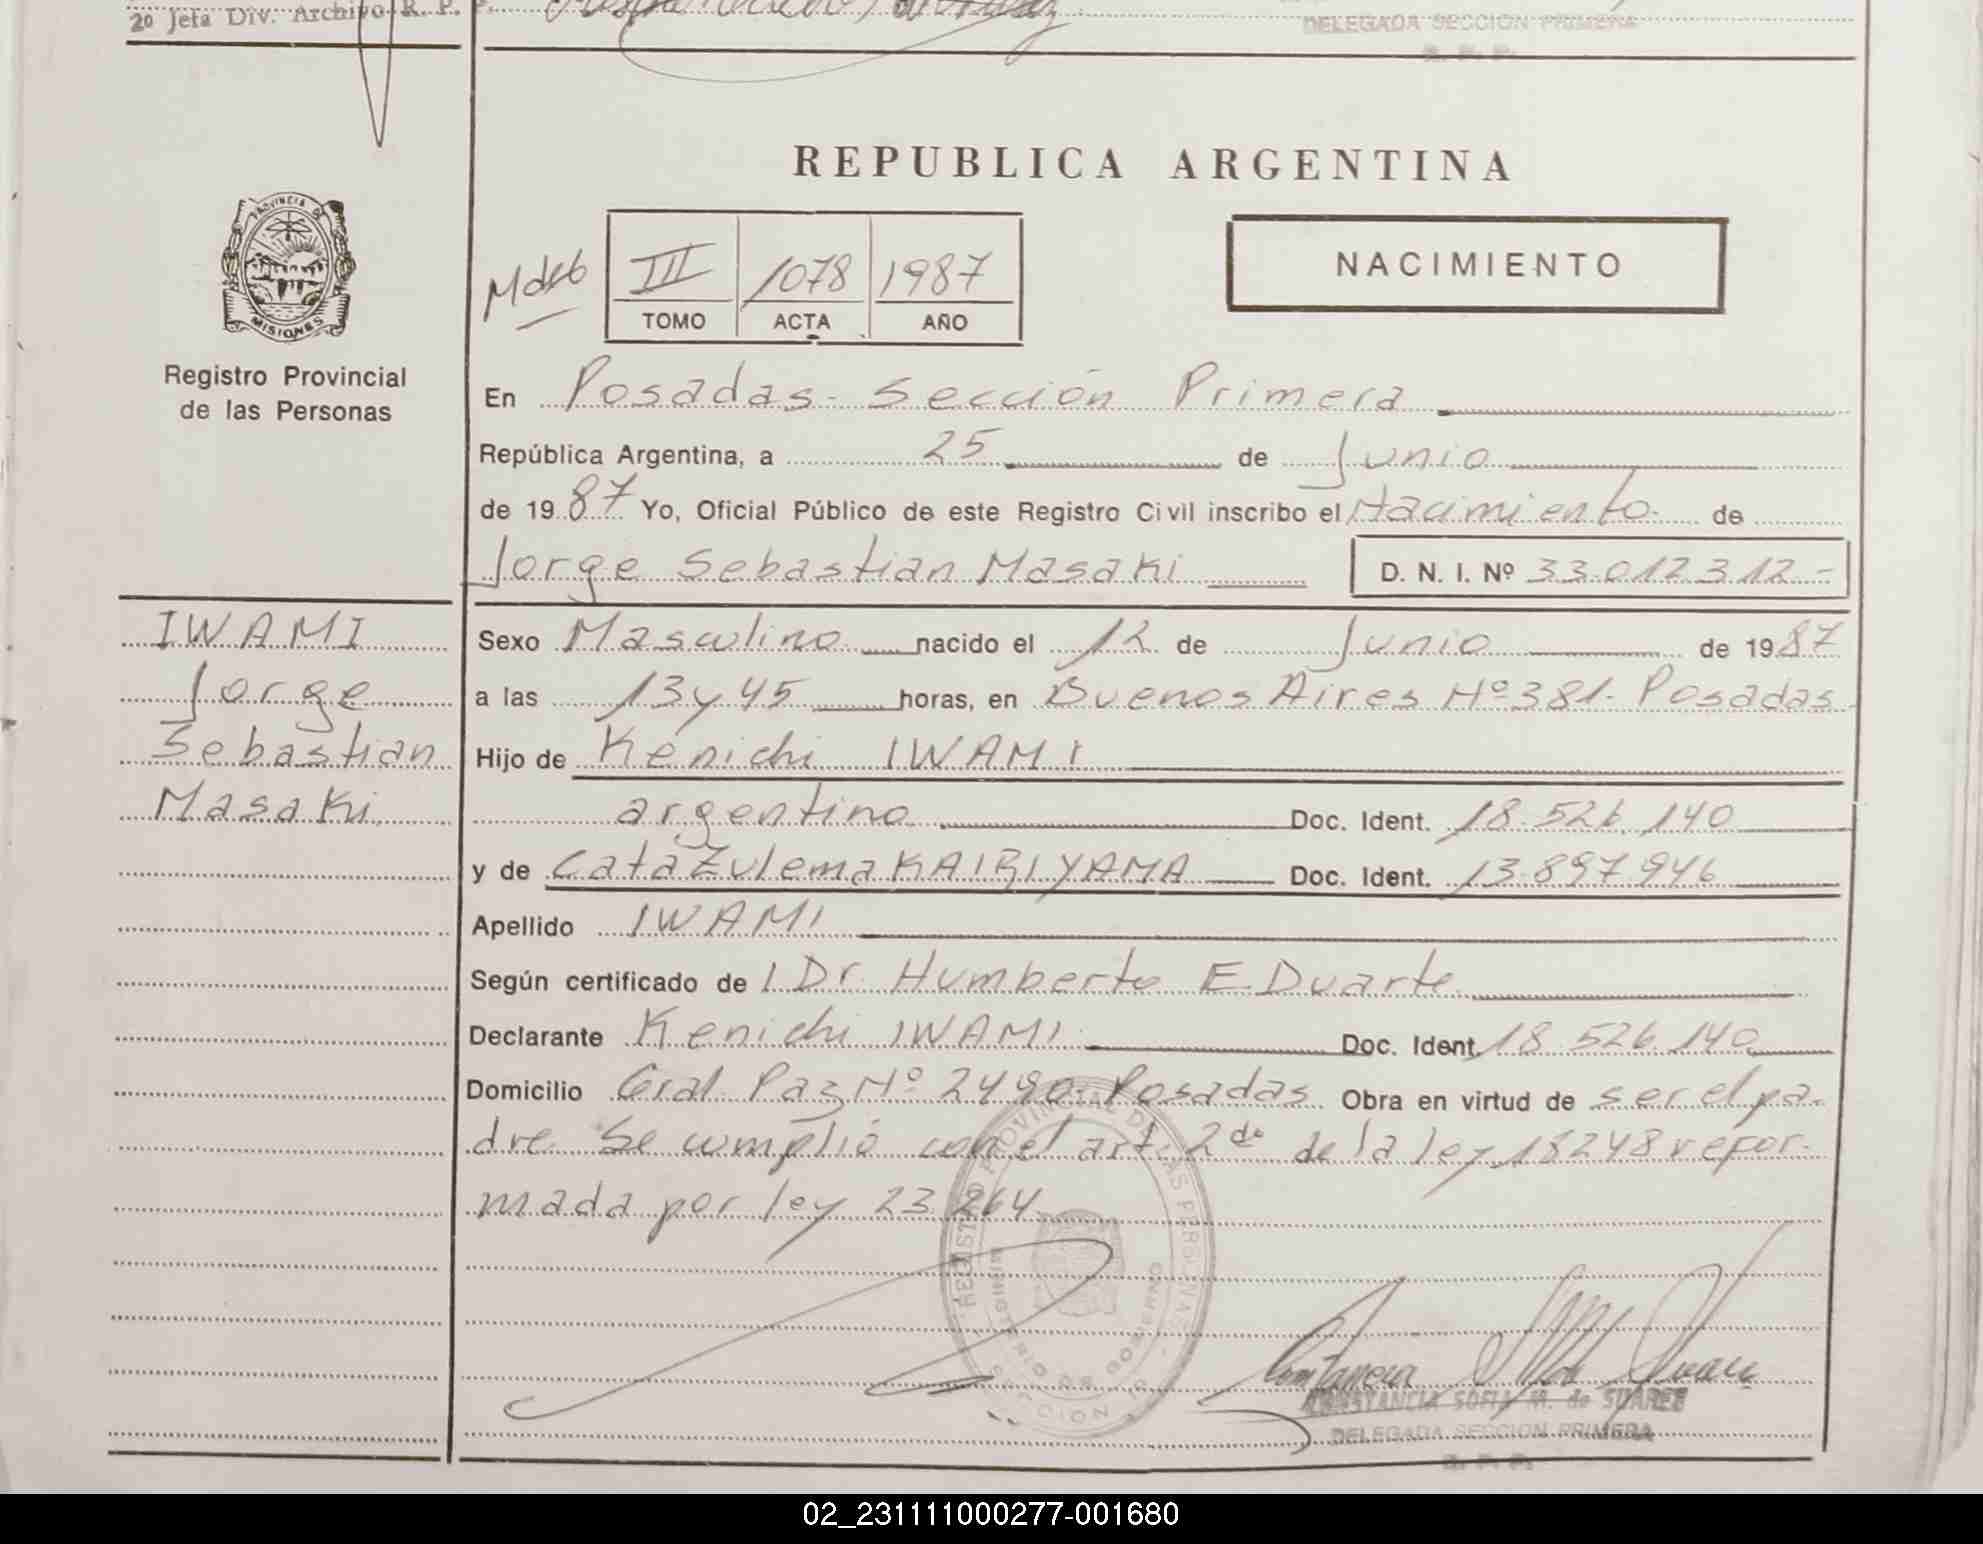 2º Jefa Div. Archivo R. P. P.
DELEGADA SECCION PRIMERA
R. P. P.
REPUBLICA ARGENTINA
PROVINCIA DE
MISIONES
Registro Provincial
de las Personas
III 1078 1987
TOMO ACTA AÑO
NACIMIENTO
En Posadas - Sección Primera
República Argentina, a 25 de Junio
de 1987 Yo, Oficial Público de este Registro Civil inscribo el Nacimiento de
Jorge Sebastian Masaki D. N. I. Nº 33.012.312-
IWAMI
Jorge
Sebastian
Masaki
Sexo Masculino nacido el 12 de Junio de 1987
a las 13 y 45 horas, en Buenos Aires Nº 381- Posadas
Hijo de Kenichi IWAMI
argentino Doc. Ident. 18.526.140
y de Cata Zulema KAIRIYAMA Doc. Ident. 13.897.946
Apellido IWAMI
Según certificado de l Dr. Humberto E. Duarte
Declarante Kenichi IWAMI Doc. Ident. 18.526.140
Domicilio Gral. Paz Nº 2490- Posadas Obra en virtud de ser el pa-
dre. Se cumplió con el art. 2do de la ley 18248 refor-
mada por ley 23.264
REGISTRO PROVINCIAL DE LAS PERSONAS
MINISTERIO DE GOBIERNO
SECCION
CONSTANCIA SOFIA M. de SUAREZ
DELEGADA SECCION PRIMERA
R. P. P.
02_231111000277-001680